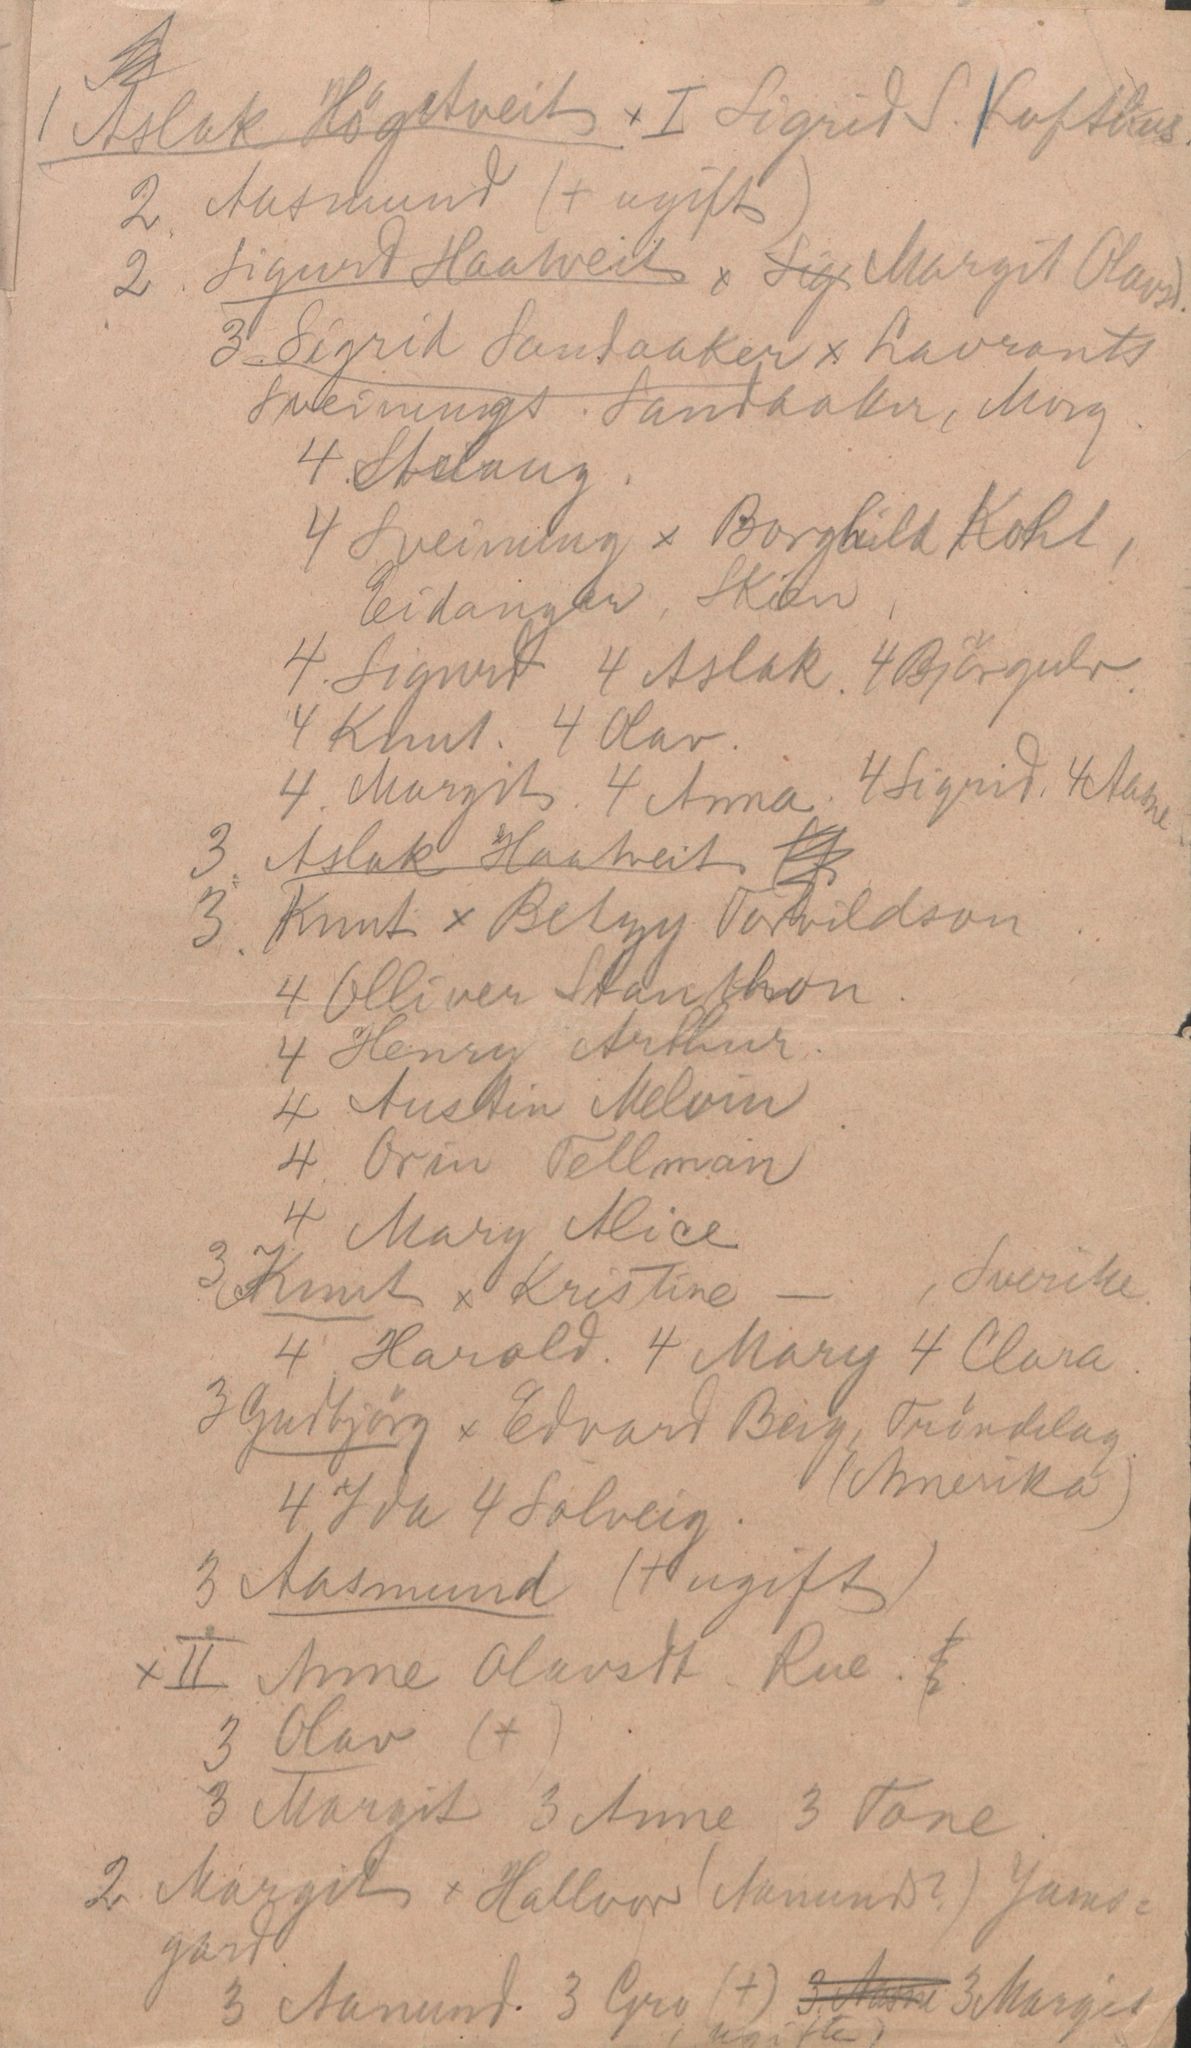 1 Aslak Högetveit × I Sigrid S. Kofthus.
2. Aasmund (+ ugift)
2. Sigurd Haatveit × Sig Margit Olavsd.
3. Sigrid Sandaaker × Lavrants
Sveinungs. Sandaaker, Morg.
4. Steiaug.
4 Sveinung × Borghild Koht,
Eidanger, Skien,
4. Sigurd 4 Aslak. 4 Björgulv.
4 Knut. 4 Olav.
4. Margit. 4 Anna. 4 Sigrid. 4 Aasne.
3. Aslak Haatveit
3. Knut × Betzy Torvildson.
4 Olliver Stanthon.
4 Henry Arthur.
4 Austin Melvin.
4. Orin Tellman
4 Mary Alice
3 Knut × Kristine — , Sverike.
4. Harold. 4 Mary 4 Clara.
3 Gudbjörg × Edvard Berg, Tröndelag.
(Amerika)
4 Ida 4 Solveig.
3 Aasmund (+ ugift)
× II Anne Olavsdt. Rue.
3 Olav (+)
3 Margit 3 Anne 3 Tone.
2. Margit × Hallvor (Aanund?) Jams=
gard.
3 Aanund. 3 Gro (+) 3 Aasne 3 Margit
(ugifte)